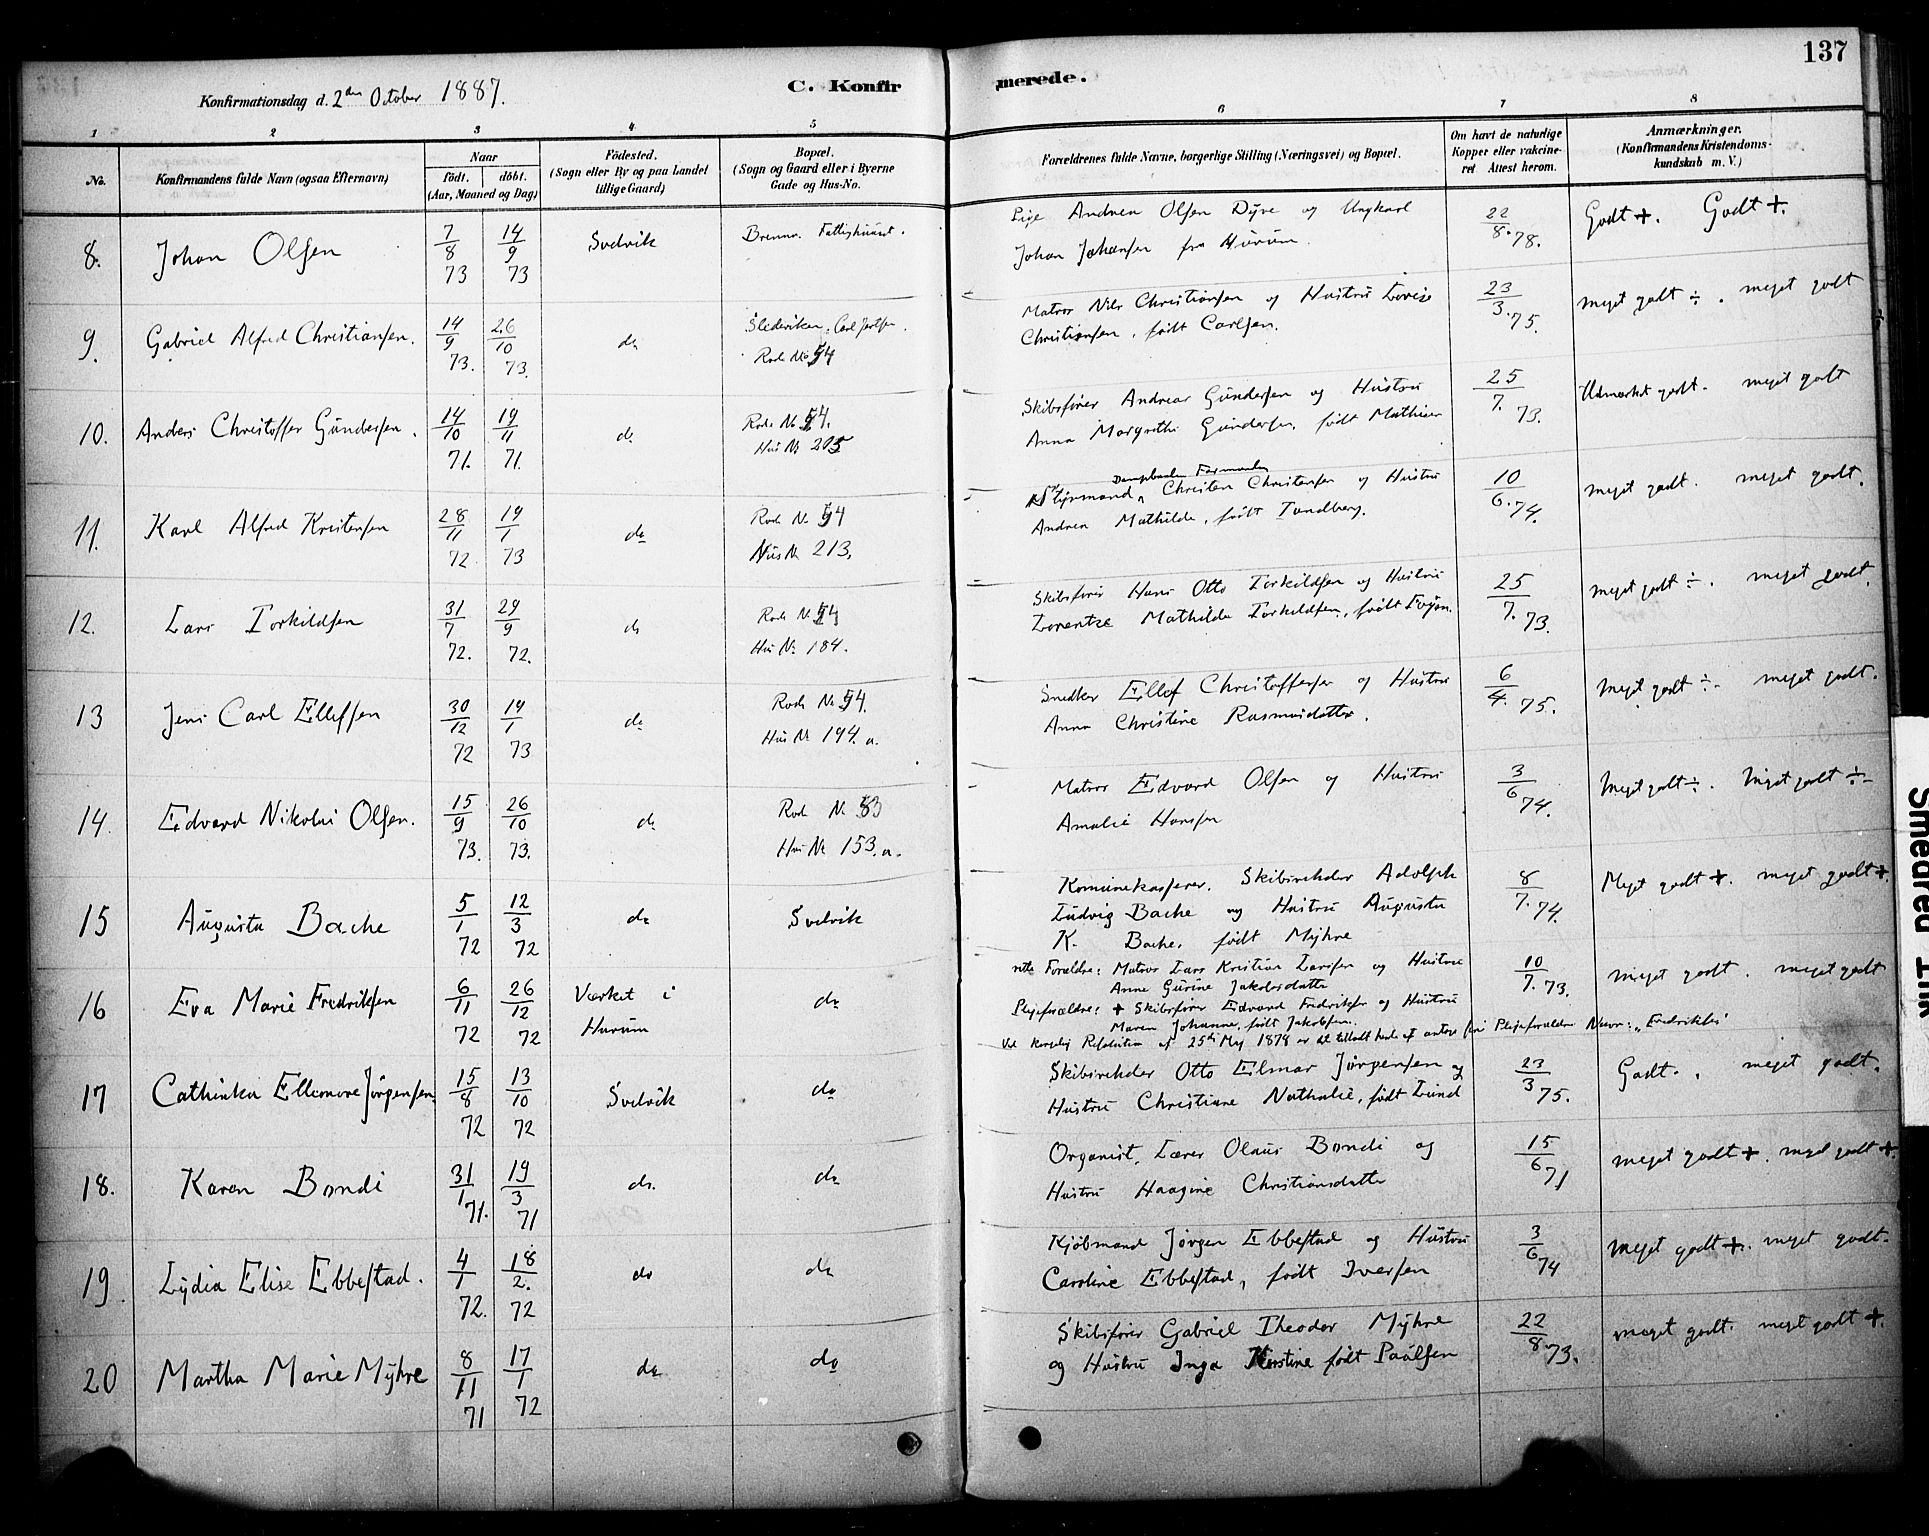 137
Konfirmationsdag d. 2den October 1887.
C. Konfirmerede.
1 2 3 4 5 6 7 8
No.
Konfirmandens fulde Navn (ogsaa Efternavn)
Naar
födt. döbt.
(Aar, Maaned og Dag)
Födested.
(Sogn eller By og paa Landet
tillige Gaard)
Bopæl.
(Sogn og Gaard eller i Byerne
Gade og Hus-No.
Forældrenes fulde Navne, borgerlige Stilling (Næringsvei) og Bopæl.
Om havt de naturlige
Kopper eller vakcine-
ret Attest herom.
Anmærkninger.
(Konfirmandens Kristendoms-
kundskab m. V.)
8. Johan Olsen 7/8 73 14/9 73 Svelvik Brenna. Fattighuset.
Pige Andrea Olsen Dyve og Ungkarl
Johan Johansen fra Hurum.
22/8.78. Godt +. Godt +.
9. Gabriel Alfred Christiansen. 14/9 73. 26/10 73. do Rode No 54
Matros Nils Christiansen og Hustru Lovise
Christiansen, født Carlsen.
23/3.75. meget godt ÷. meget godt
10. Anders Christoffer Gundersen. 14/10 71. 19/11 71. do Rode No 54.
Hus No 205
Skibsfører Andreas Gundersen og Hustru
Anna Margrethe Gundersen, født Mathisen
25/7.73. Udmærket godt. meget godt
11. Karl Alfred Kristensen 28/11 72 19/1 73 do Rode No 54
Hus No 213.
Styrmand, Christen Christensen og Hustru
Andrea Mathilde, født Tandberg.
10/6.74. meget godt. meget godt.
12. Lars Torkildsen 31/7 72. 29/9 72. do Rode No 54
Hus No 184.
Skibsfører Hans Otto Torkildsen og Hustru
Lorentze Mathilde Torkildsen, født
25/7.73. meget godt ÷. meget godt.
13 Jens Carl Ellefsen 30/12 72 19/1 73 do Rode No 54.
Hus No 194. a.
Snedker Ellef Christoffersen og Hustru
Anna Christine Rasmusdatter.
6/4.75. Meget godt ÷. meget godt.
14. Edvard Nikolai Olsen. 15/9 73. 26/10 73. do Rode No 53
Hus No 153. a.
Matros Edvard Olsen og Hustru
Amalie Hansen
3/6 74. Meget godt ÷. Meget godt ÷
15 Augusta Bache 5/1 72 12/3 72 do Svelvik
Komunekasserer, Skibsrehder Adolph
Ludvig Bache og Hustru Augusta
K. Bache, født Myhre
8/7.74. Meget godt +. meget godt +.
16 Eva Marie Fredriksen 6/11 72 26/12 72 Værket i
Hurum do
rette Forældre: Matros Lars Kristian Larsen og Hustru
Anne Gurine Jakobsdatter
Plejeforældre: + Skibsfører Edvard Fredriksen og Hustru
Maren Johanne, født Jakobsen.
Ved kongelig Resolution af 25de Maj 1878 er det tilladt hende at antage sine Plejeforældres Navn: "Fredriksen"
10/7.73. meget godt. meget godt
17 Cathinka Ellenore Jørgensen 15/8 72 13/10 72 Svelvik do
Skibsrehder Otto Elmar Jørgensen og
Hustru Christiane Nathalie, født Lund
23/3 75. Godt. meget godt.
18. Karen Bondi 31/1 71. 19/3 71 do. do
Organist, Lærer Olaus Bondi og
Hustru Haagine Christiansdatter
15/6 71 meget godt +. meget godt +.
19 Lydia Elise Ebbestad. 4/1 72. 18/2. 72 do do
Kjøbmand Jørgen Ebbestad og Hustru
Caroline Ebbestad, født Iversen
3/6 74 meget godt +. meget godt.
20 Martha Marie Myhre 8/11 71 17/1 72 do do
Skibsfører Gabriel Theodor Myhre
og Hustru Inga Kirstine født Paulsen
22/8.73. meget godt. meget godt +.
Smeared Ink